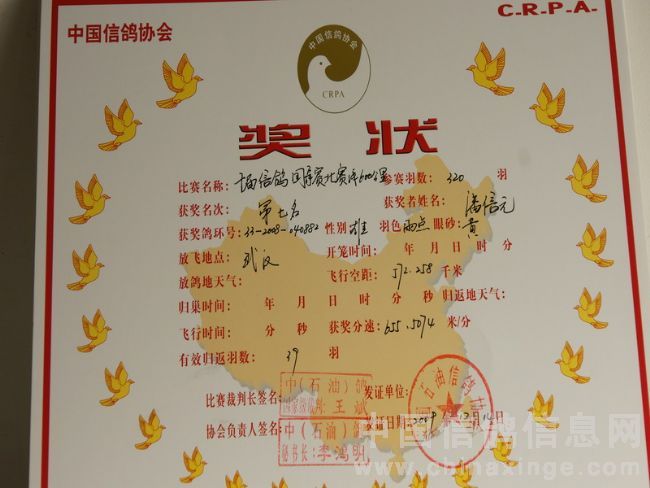 C-R-P-A-
中国信鸽协会
中国信鸽协会
CRPA
奖状
比赛名称: 信鸽国际赛北赛年600公里 参赛羽数: 320 羽
获奖名次: 第七名 获奖者姓名: 潘信元
获奖鸽环号: 33-2008-040882 性别 雄 羽色 雨点 眼砂: 黄
放飞地点: 武汉 开笼时间: 年 月 日 时 分
放鸽地天气: 飞行空距: 572.258 千米
归巢时间: 年 月 日 时 分 秒 归返地天气:
飞行时间: 分 秒 获奖分速: 655.5074 米/分
有效归返羽数: 39 羽
比赛裁判长签名: 中(石油)鸽 王斌 发证单位: 石油信鸽
协会负责人签名: 中(石油)鸽 秘书长:李鸿明 发证日期: 2009年12月10日
中国信鸽信息网
www.chinaxinge.com